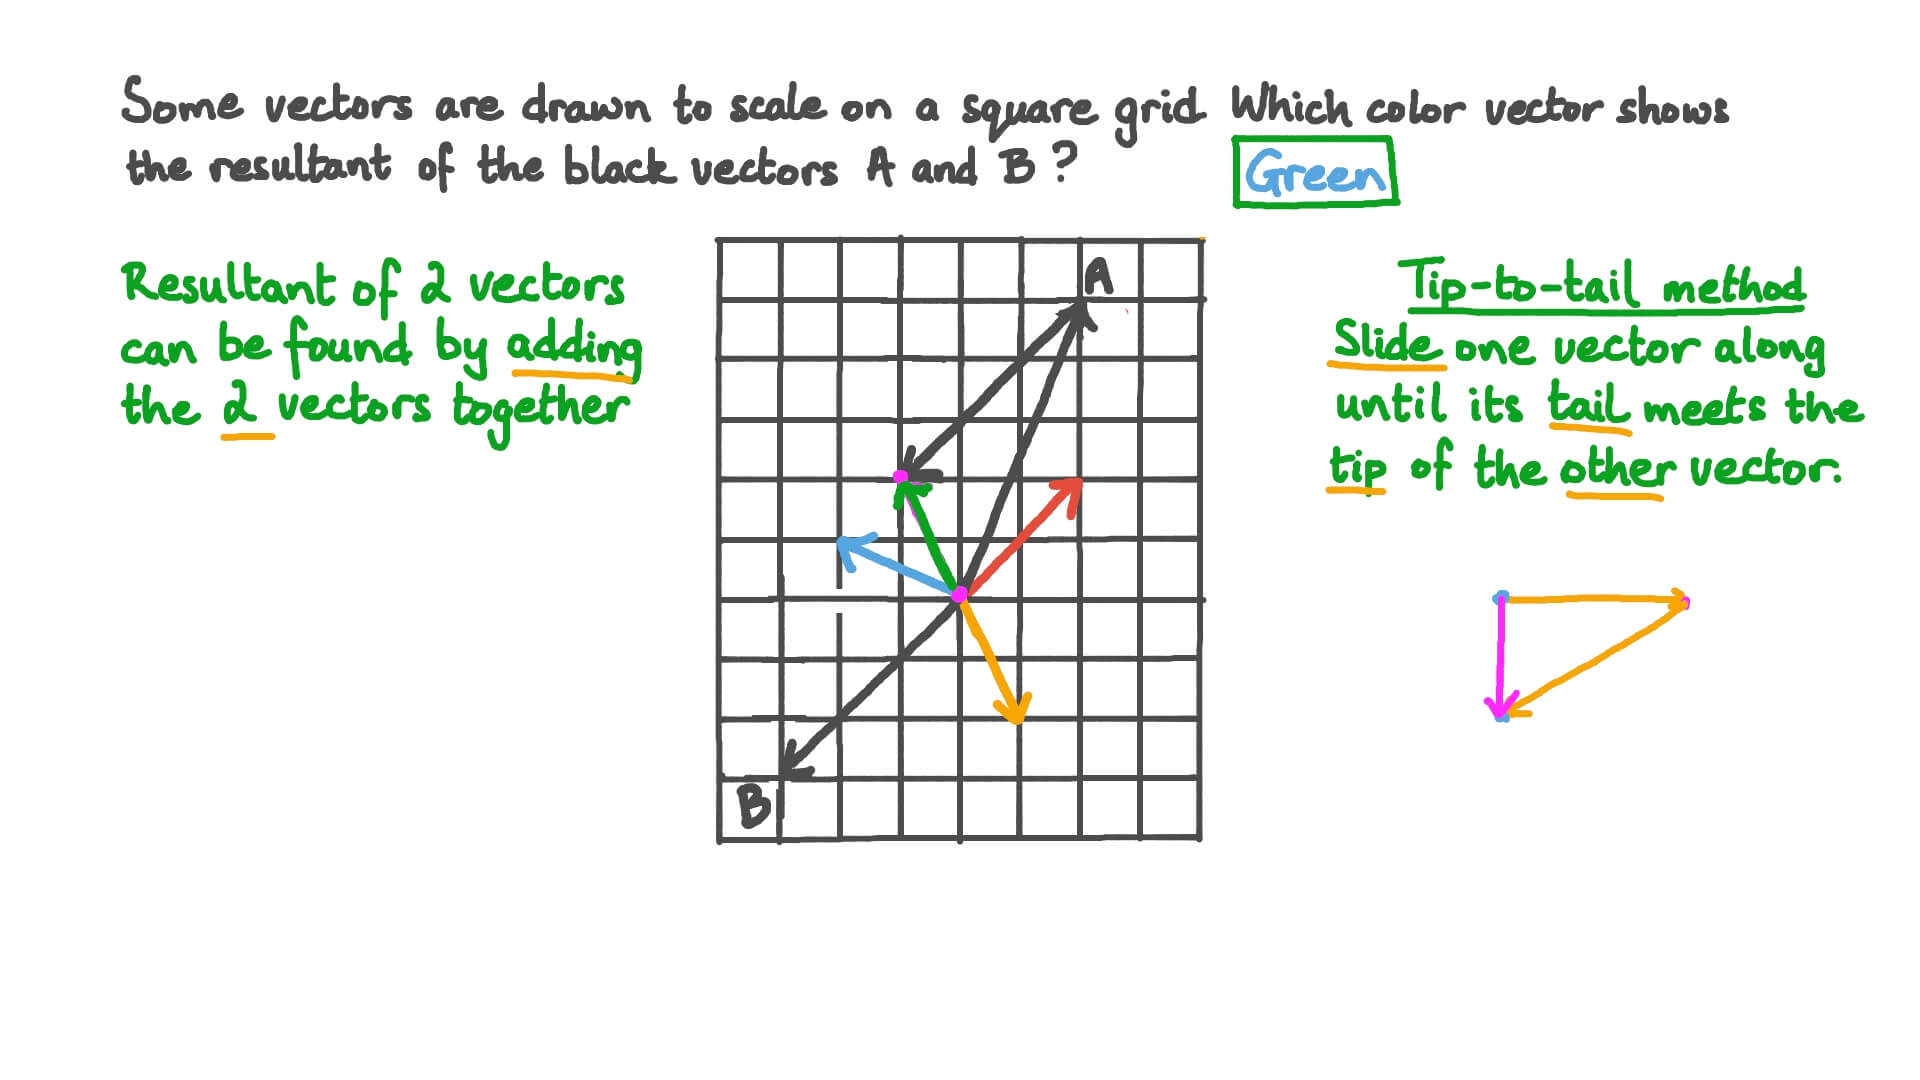 Some vectors are drawn to scale on a square grid Which color vector shows
the resultant of the black vectors A and B?
Green
Resultant of 2 vectors
can be found by adding
the 2 vectors together
Tip-to-tail method
Slide one vector along
until its tail meets the
tip of the other vector.
A
B